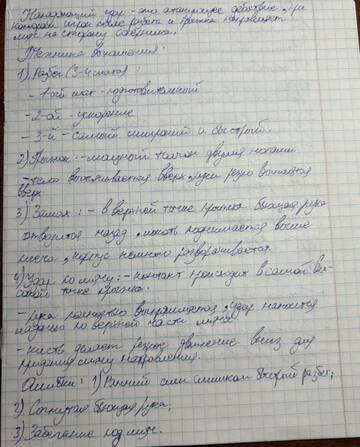 Нападающий удар - это атакующее действие, при
котором игрок после разбега и прыжка направляет
мяч на сторону соперника.
Техника выполнения:
1) Разбег (3-4 шага):
- 1-ый шаг - подготовительный
- 2-ой - ускорение
- 3-й - самый широкий и быстрый.
2) Прыжок: - мощный толчок двумя ногами
- тело выталкивается вверх, руки резко выносятся
вверх
3) Замах: - в верхней точке прыжка бьющая рука
отводится назад, локоть поднимается выше
плеча, корпус немного разворачивается
4) Удар по мячу: - контакт происходит в самой вы-
сокой точке прыжка.
- рука полностью выпрямляется, удар наносится
ладонью по верхней части мяча
- кисть делает резкое движение вниз для
придания мячу направления.
Ошибки: 1) Ранний или слишком быстрый разбег;
2) Согнутая бьющая рука;
3) Забегание под мяч.